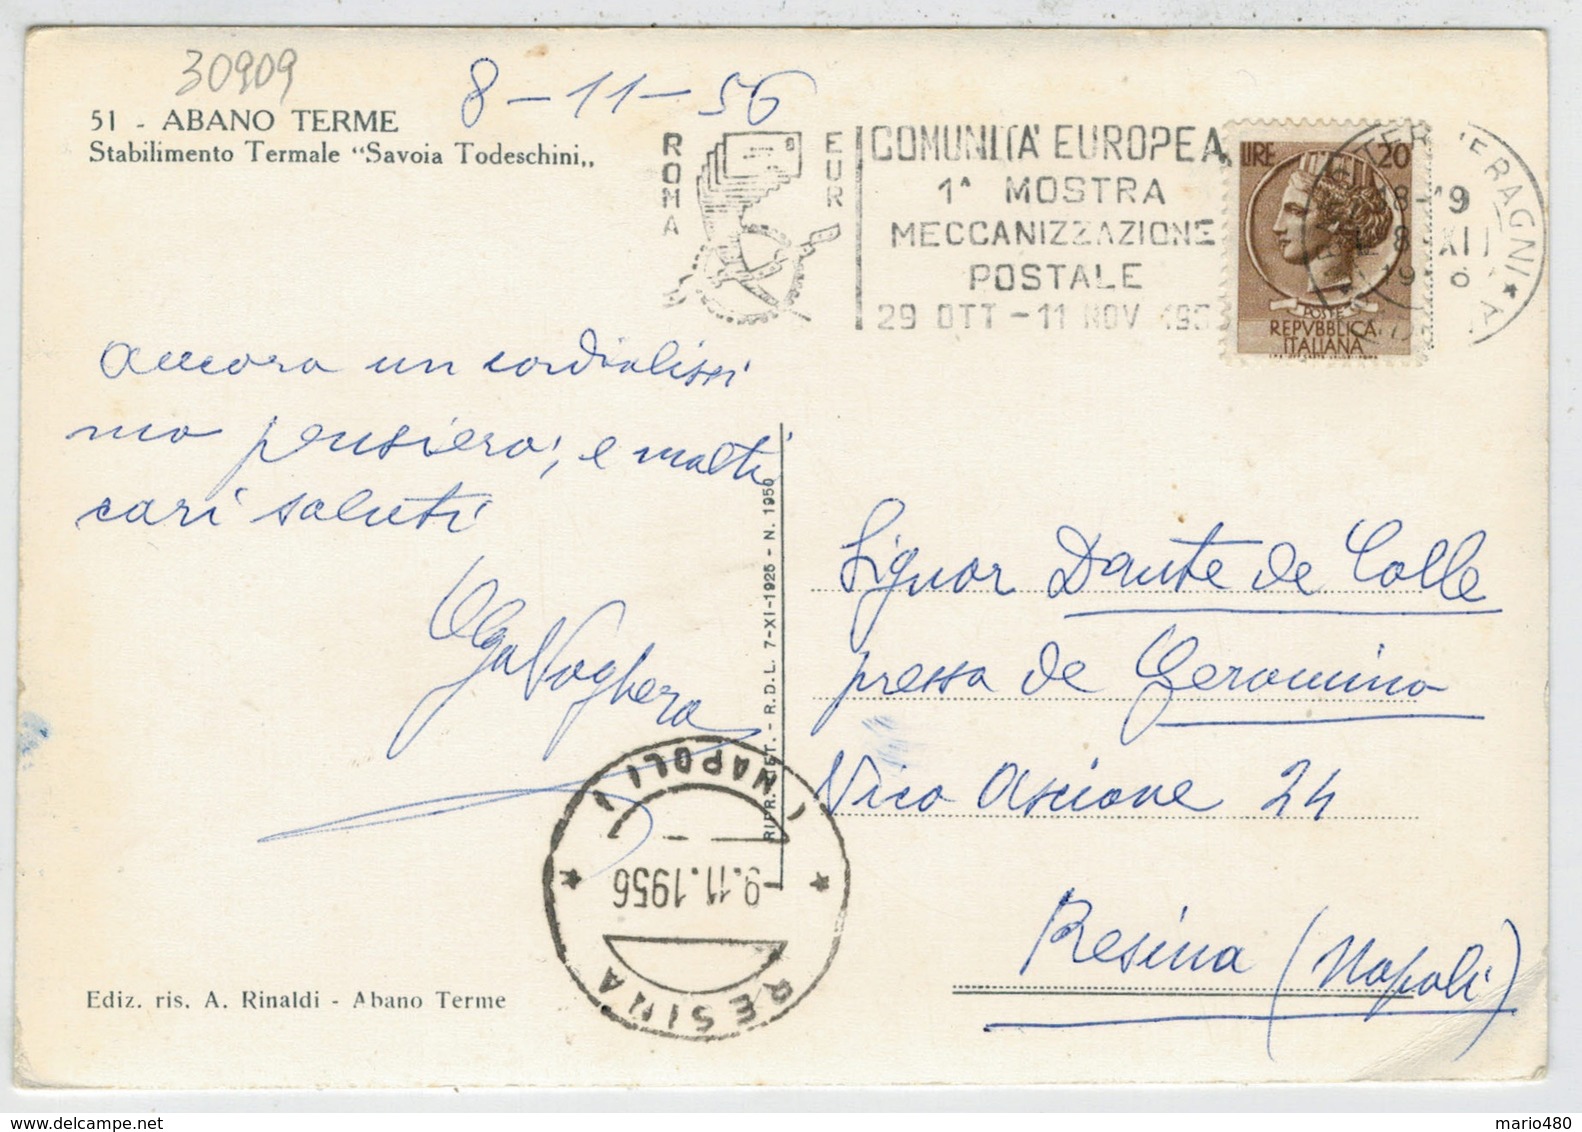 30909
8-11-56
51 - ABANO TERME
Stabilimento Termale "Savoia Todeschini„
ROMA
EUR
COMUNITA' EUROPEA
1ª MOSTRA
MECCANIZZAZIONE
POSTALE
29 OTT - 11 NOV 195
LIRE 20
POSTE
REPVBBLICA
ITALIANA
18-19
8 XI
ancora un cordialissi
mo pensiero, e molti
cari saluti
Olga Voghera
RIPR. VIET. - R.D.L. 7-XI-1925 - N. 1950
Signor Dante de Colle
presso de Geronimo
Vico Ascione 24
Resina (Napoli)
RESINA
(NAPOLI)
-9.11.1956
Ediz. ris. A. Rinaldi - Abano Terme
mario480